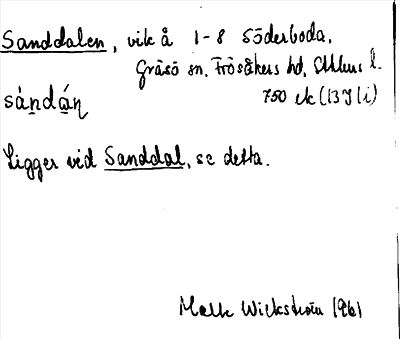 Sanddalen, vik å 1-8 Söderboda,
Gräsö sn, Frösåkers hd, l.
sándáṇ 750 ek (13 I
Ligger vid Sanddal, se detta.
Wickström 1961